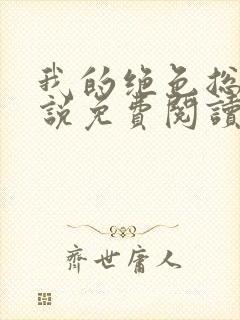 我的绝色总
说免費閱讀
齊世庸人